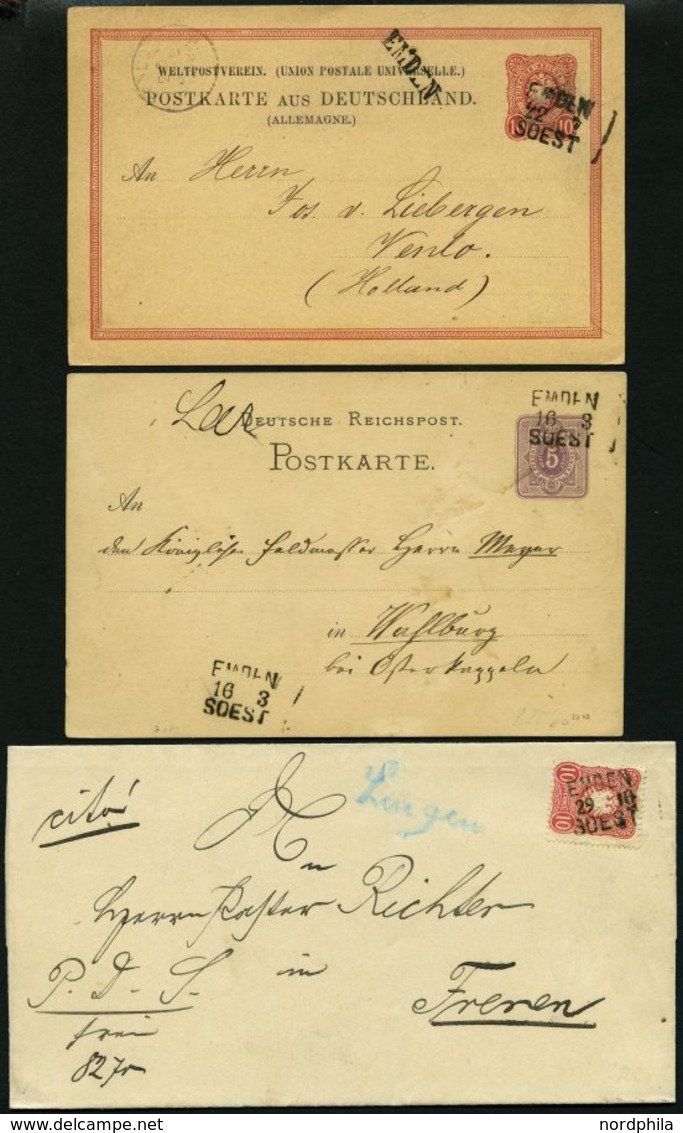 EMDEN
WELTPOSTVEREIN. (UNION POSTALE UNIVERSELLE.)
POSTKARTE AUS DEUTSCHLAND.
(ALLEMAGNE.)
10 10
EMDEN
22 3
SOEST
An Herrn
Jos. v. Liebergen
Venlo.
(Holland)
EMDEN
16 3
SOEST
DEUTSCHE REICHSPOST.
POSTKARTE.
5
An
den Königlichen Feldmesser Herrn Meyer
in Wahlburg
bei Osterkappeln
EMDEN
16 3
SOEST
cito!
Lingen
10 10
EMDEN
29 10
SOEST
Herrn Pastor Richter
P. D. S. in Freren
frei
827
© nordphila